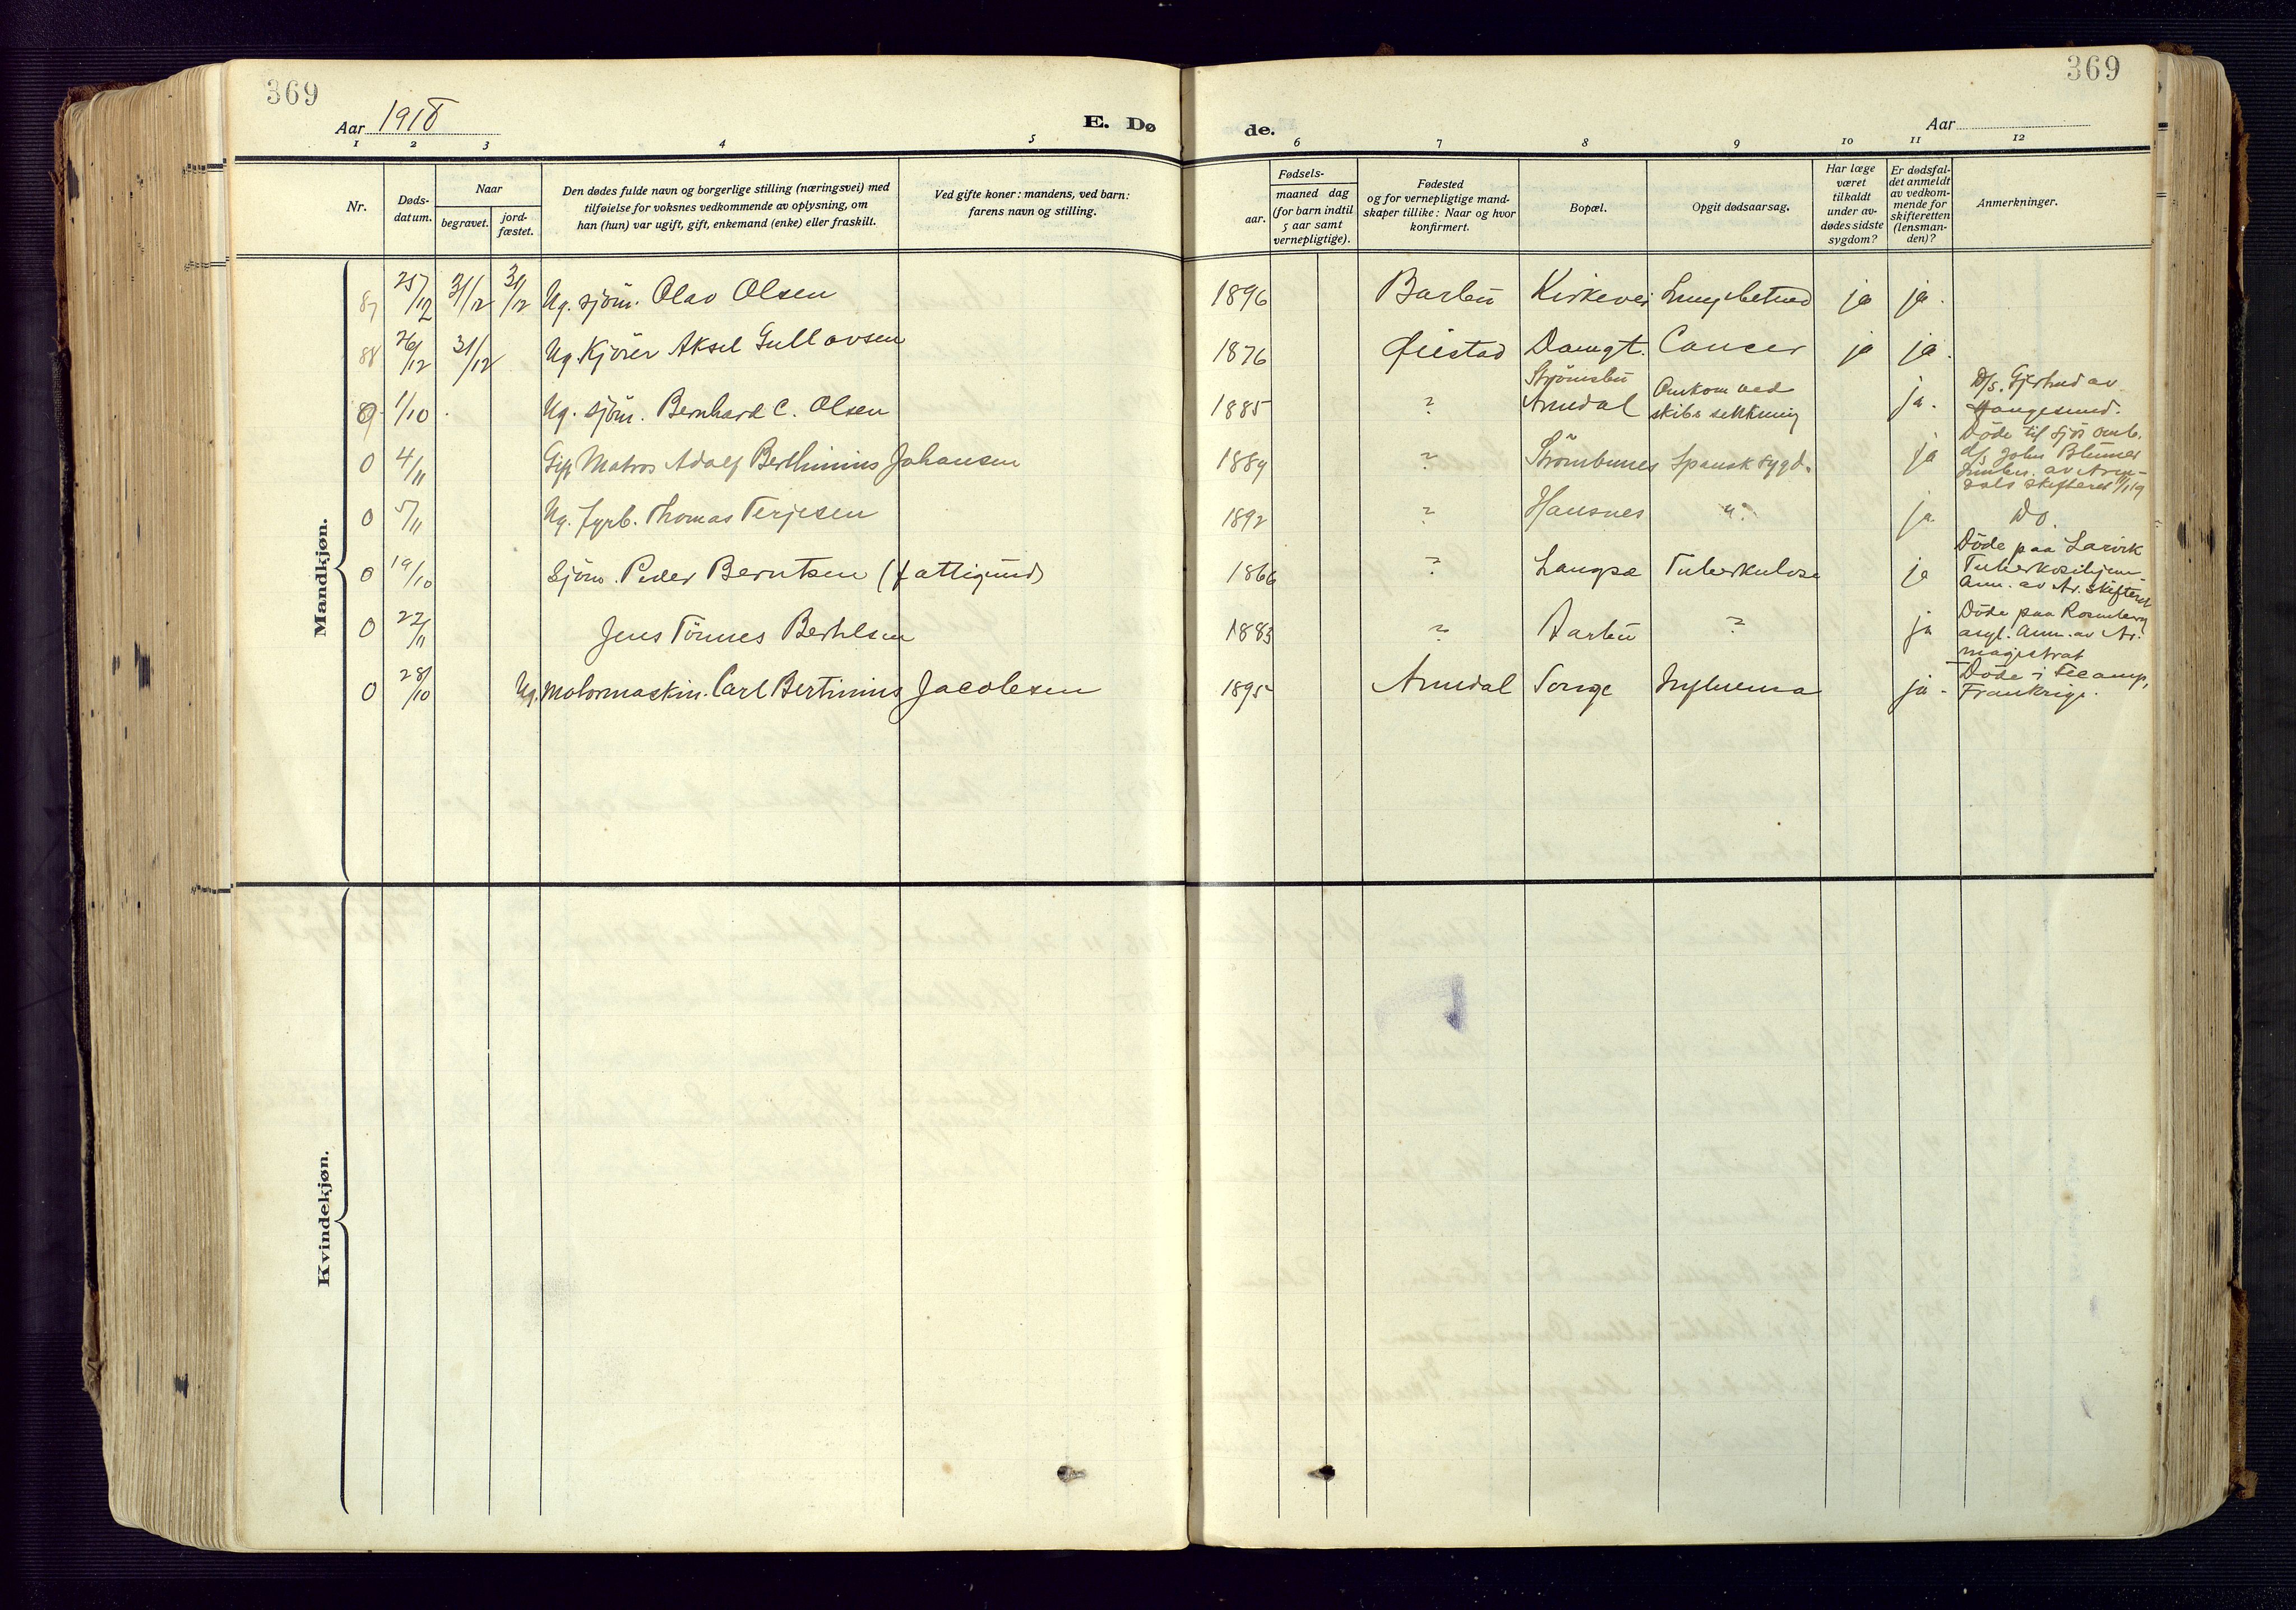 369
369
Aar 1918
E. Dø
de.
Aar
1 2 3 4 5 6 7 8 9 10 11 12
Nr.
Døds-
datum.
Naar
begravet.
jord-
fæstet.
Den dødes fulde navn og borgerlige stilling (næringsvei) med
tilføielse for voksnes vedkommende av oplysning, om
han (hun) var ugift, gift, enkemand (enke) eller fraskilt.
Ved gifte koner: mandens, ved barn:
farens navn og stilling.
Fødsels-
aar.
maaned dag
(for barn indtil
5 aar samt
vernepligtige).
Fødested
og for vernepligtige mand-
skaper tillike: Naar og hvor
konfirmert.
Bopæl.
Opgit dødsaarsag.
Har læge
været
tilkaldt
under av-
dødes sidste
sygdom?
Er dødsfal-
det anmeldt
av vedkom-
mende for
skifteretten
(lensman-
den)?
Anmerkninger.
Mandkjøn.
87 25/12 31/12 31/12 Ug. sjöm. Olav Olsen 1896 Barbu Kirkevei Lungebetend ja ja.
88 26/12 31/12 Ug. Kjörer Aksel Gullavsen 1876 Øiestad Damgt. Cancer ja ja.
89 1/10 Ug. sjöm. Bernhard C. Olsen 1885 ? Strömsbu Arendal Omkom ved skibs sækkning ja. D/s. Gjertrud av Haugesund.
0 4/11 Gift Matros Adolf Berthinius Johansen 1889 ? Strömbunes Spansk sygd. ja Döde til sjös omb. d/s John Blumer av Aren- dals skifteret
0 5/11 Ug. fyrb. Thomas Terjesen 1892 ? Hausnes " ja Do.
0 19/10 Sjöm. Peder Berntsen (fattigund) 1866 ? Langsæ Tuberkulose ja Döde paa Larvik Tuberkosehjem Anm. av Ar. skifteret
0 22/11 Jens Tönnes Berthelsen 1883 ? Barbu ? ja Döde paa Rosenberg asyl. Anm. av Ar. magistrat
0 28/10 Ug. Motormaskin. Carl Bertinius Jacobsen 1895 Arendal Songe Influensa ja - Döde i Fecamp, Frankrige.
Kvindekjøn.